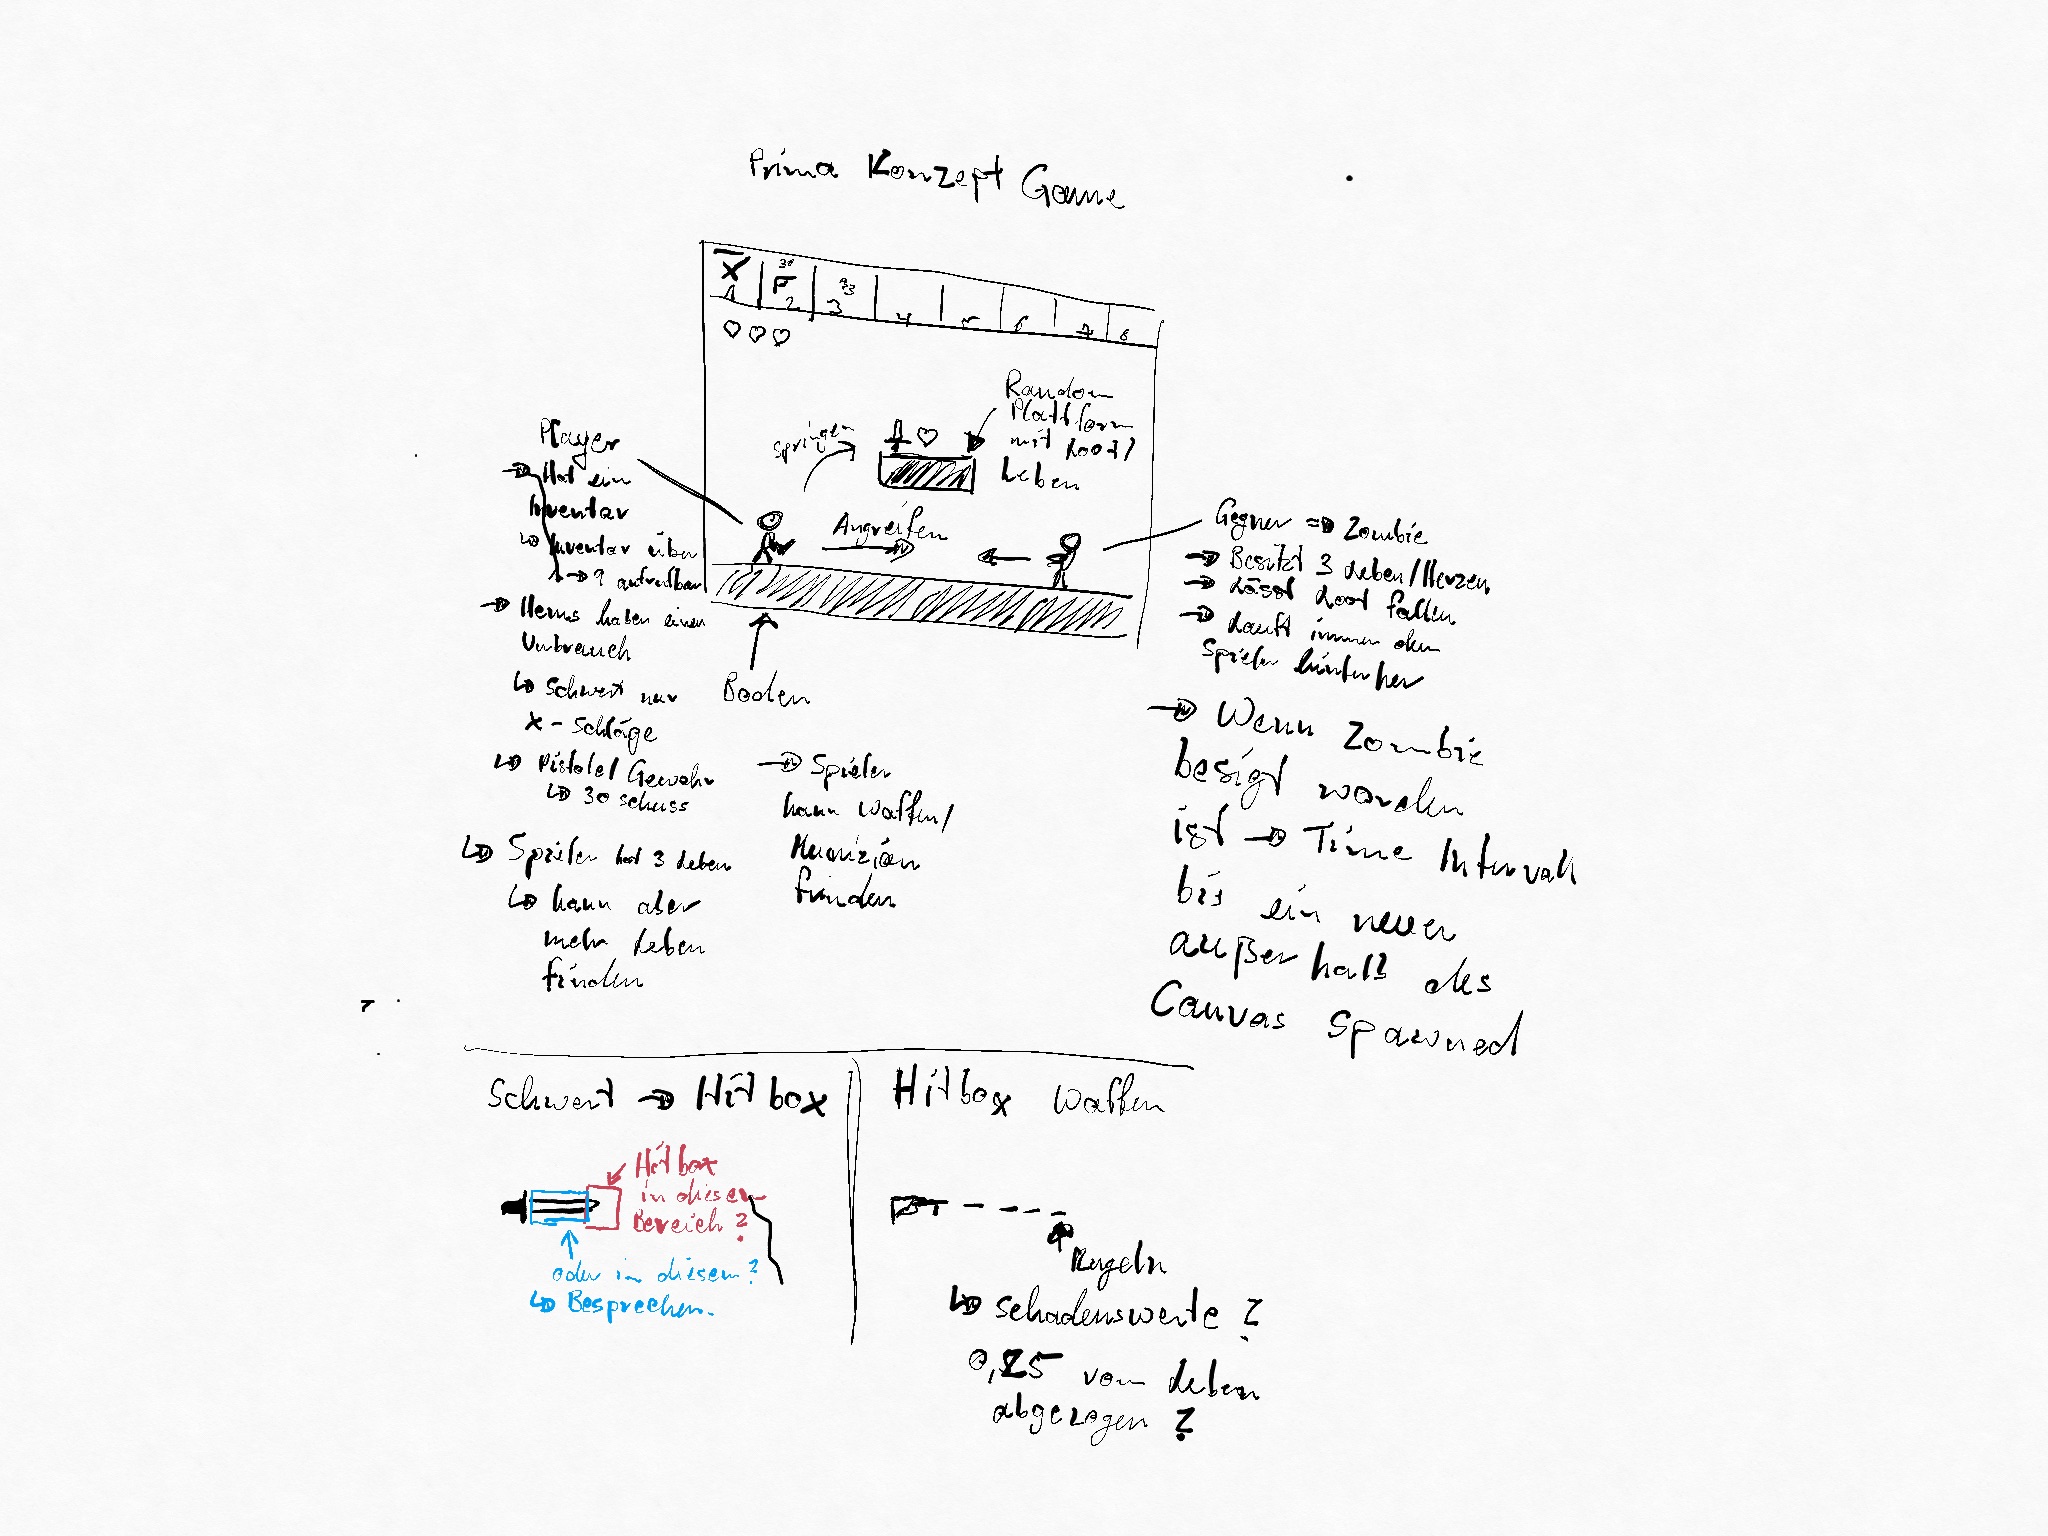 Prima Konzept Game
30
1 2 3 4 5 6 7 8
Random
Plattform
mit Loot/
Leben
springen
Angreifen
Player
→ Hat ein
Inventar
↳ Inventar über
1 → 9 aufrufbar
→ Items haben einen
Verbrauch
↳ Schwert nur
x - Schläge
↳ Pistole/Gewehr
↳ 30 schuss
↳ Spieler hat 3 Leben
↳ kann aber
mehr Leben
finden
Boden
→ Spieler
kann Waffen/
Munizion
finden
Gegner => Zombie
→ Besitzt 3 Leben/Herzen
→ Lässt Loot fallen
→ Läuft immer dem
Spieler hinterher
→ Wenn Zombie
besigt worden
ist → Time Intervall
bis ein neuer
außerhalb des
Canvas spawned
Schwert → Hitbox
Hitbox
in diesem
Bereich?
oder in diesem?
↳ Besprechen.
Hitbox Waffen
Kugeln
↳ schadenswerte?
0,25 vom Leben
abgezogen?